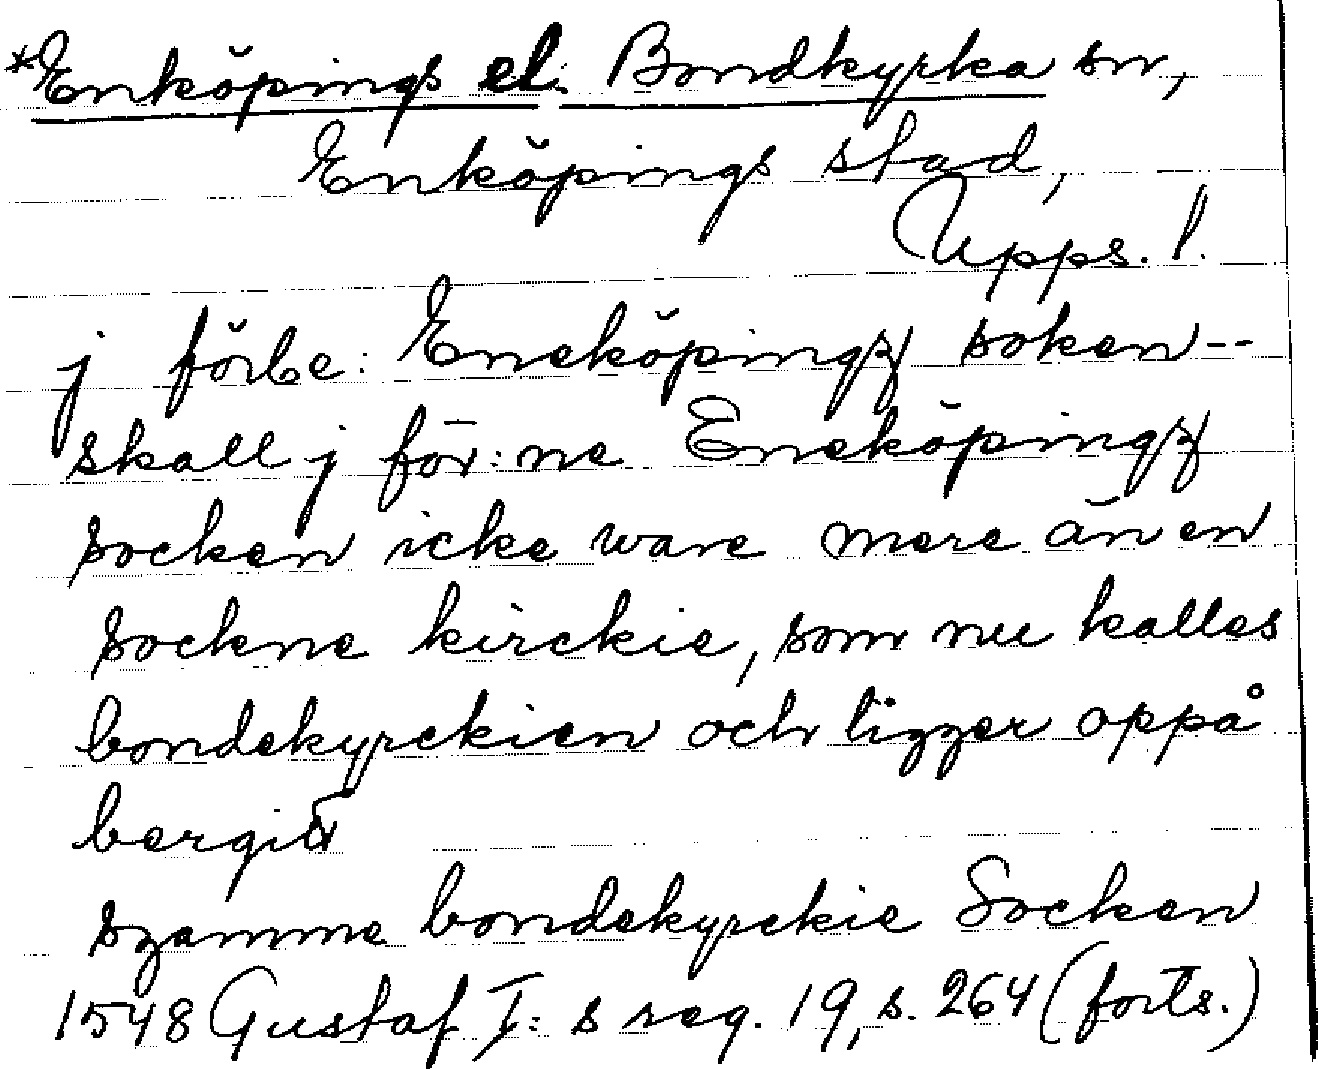 *Enköpings el. Bondkyrka sn,
Enköpings stad,
Upps. l.
j förbe: Eneköpingz soken--
skall j för:ne Eneköpingz
socken icke ware mere än en
sockne kirckie, som nu kalles
bondekyrckien och ligger oppå
bergit
szamme bondekyrckie Socken
1548 Gustaf I:s reg. 19, s. 264 (forts.)